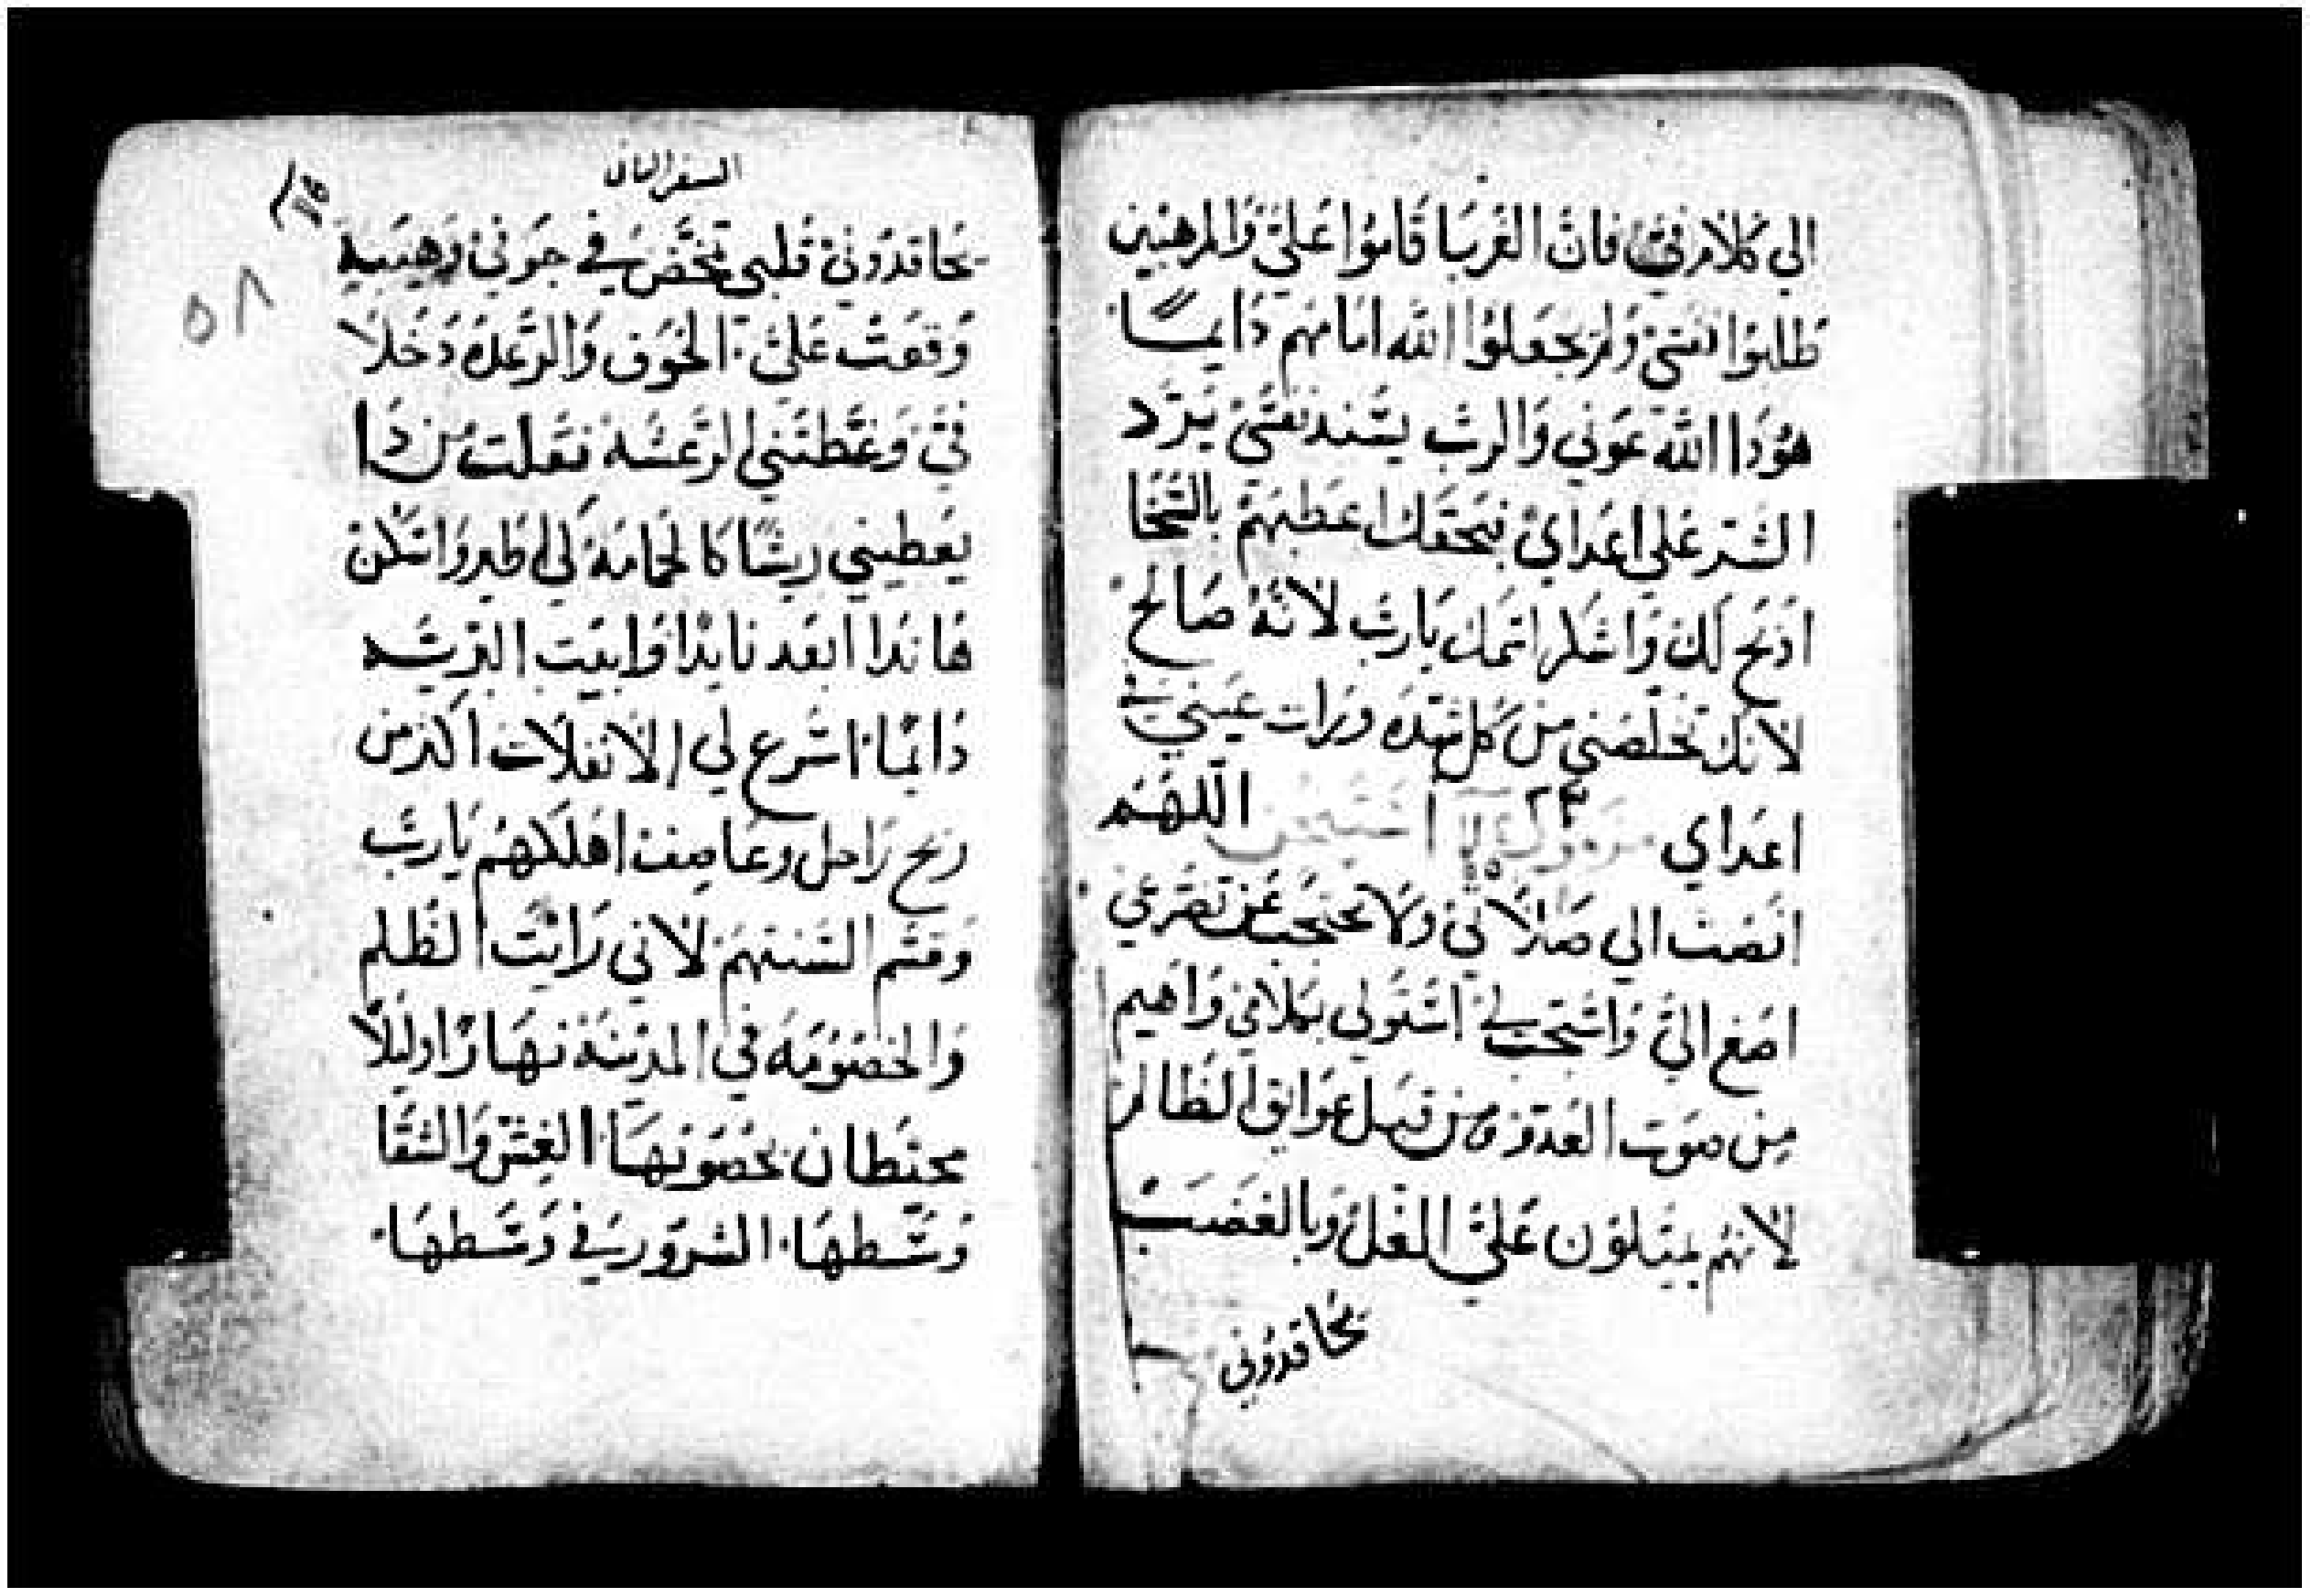 الي كلام فمي فان الغربا قاموا علي والمرهبين
طلبوا نفسي ولم يجعلوا الله امامهم دايماً
هوذا الله عوني والرب يسند نفسي يرد
الشر علي اعداي بحقك اعطبهم بالسخا
اذبح لك واشكر اسمك يارب لانه صالح
لانك تخلصني من كل شده ورات عيني في
اعداي مزمور اللهم
انصت الي صلاتي ولا تحتجب عن تضرعي
اصغ الي واستجب لي استولي بكلامي واهيم
من صوت العدو ومن قبل عوايق الظالم
لانهم يميلون علي الغل وبالغضب
يحاقدوني
السفر الثاني
٥٨
يحاقدوني قلبي تمخض في جوفي وهيبة
وقعت علي الخوف والرعده دخلا
في وغطتني الرعشه فقلت من ذا
يعطيني ريشا كالحمامه لي اطير واسكن
هانذا ابعد نابذا وابيت البريه
دايما اسرع لي الانفلات اكثر من
ريح راحل وعاصف اهلكهم يارب
وقسم السنتهم لاني رايت الظلم
والخصومه في المدينه نهارا وليلا
محيطان بحصونها الغش والشقا
وسطها الشرور في وسطها